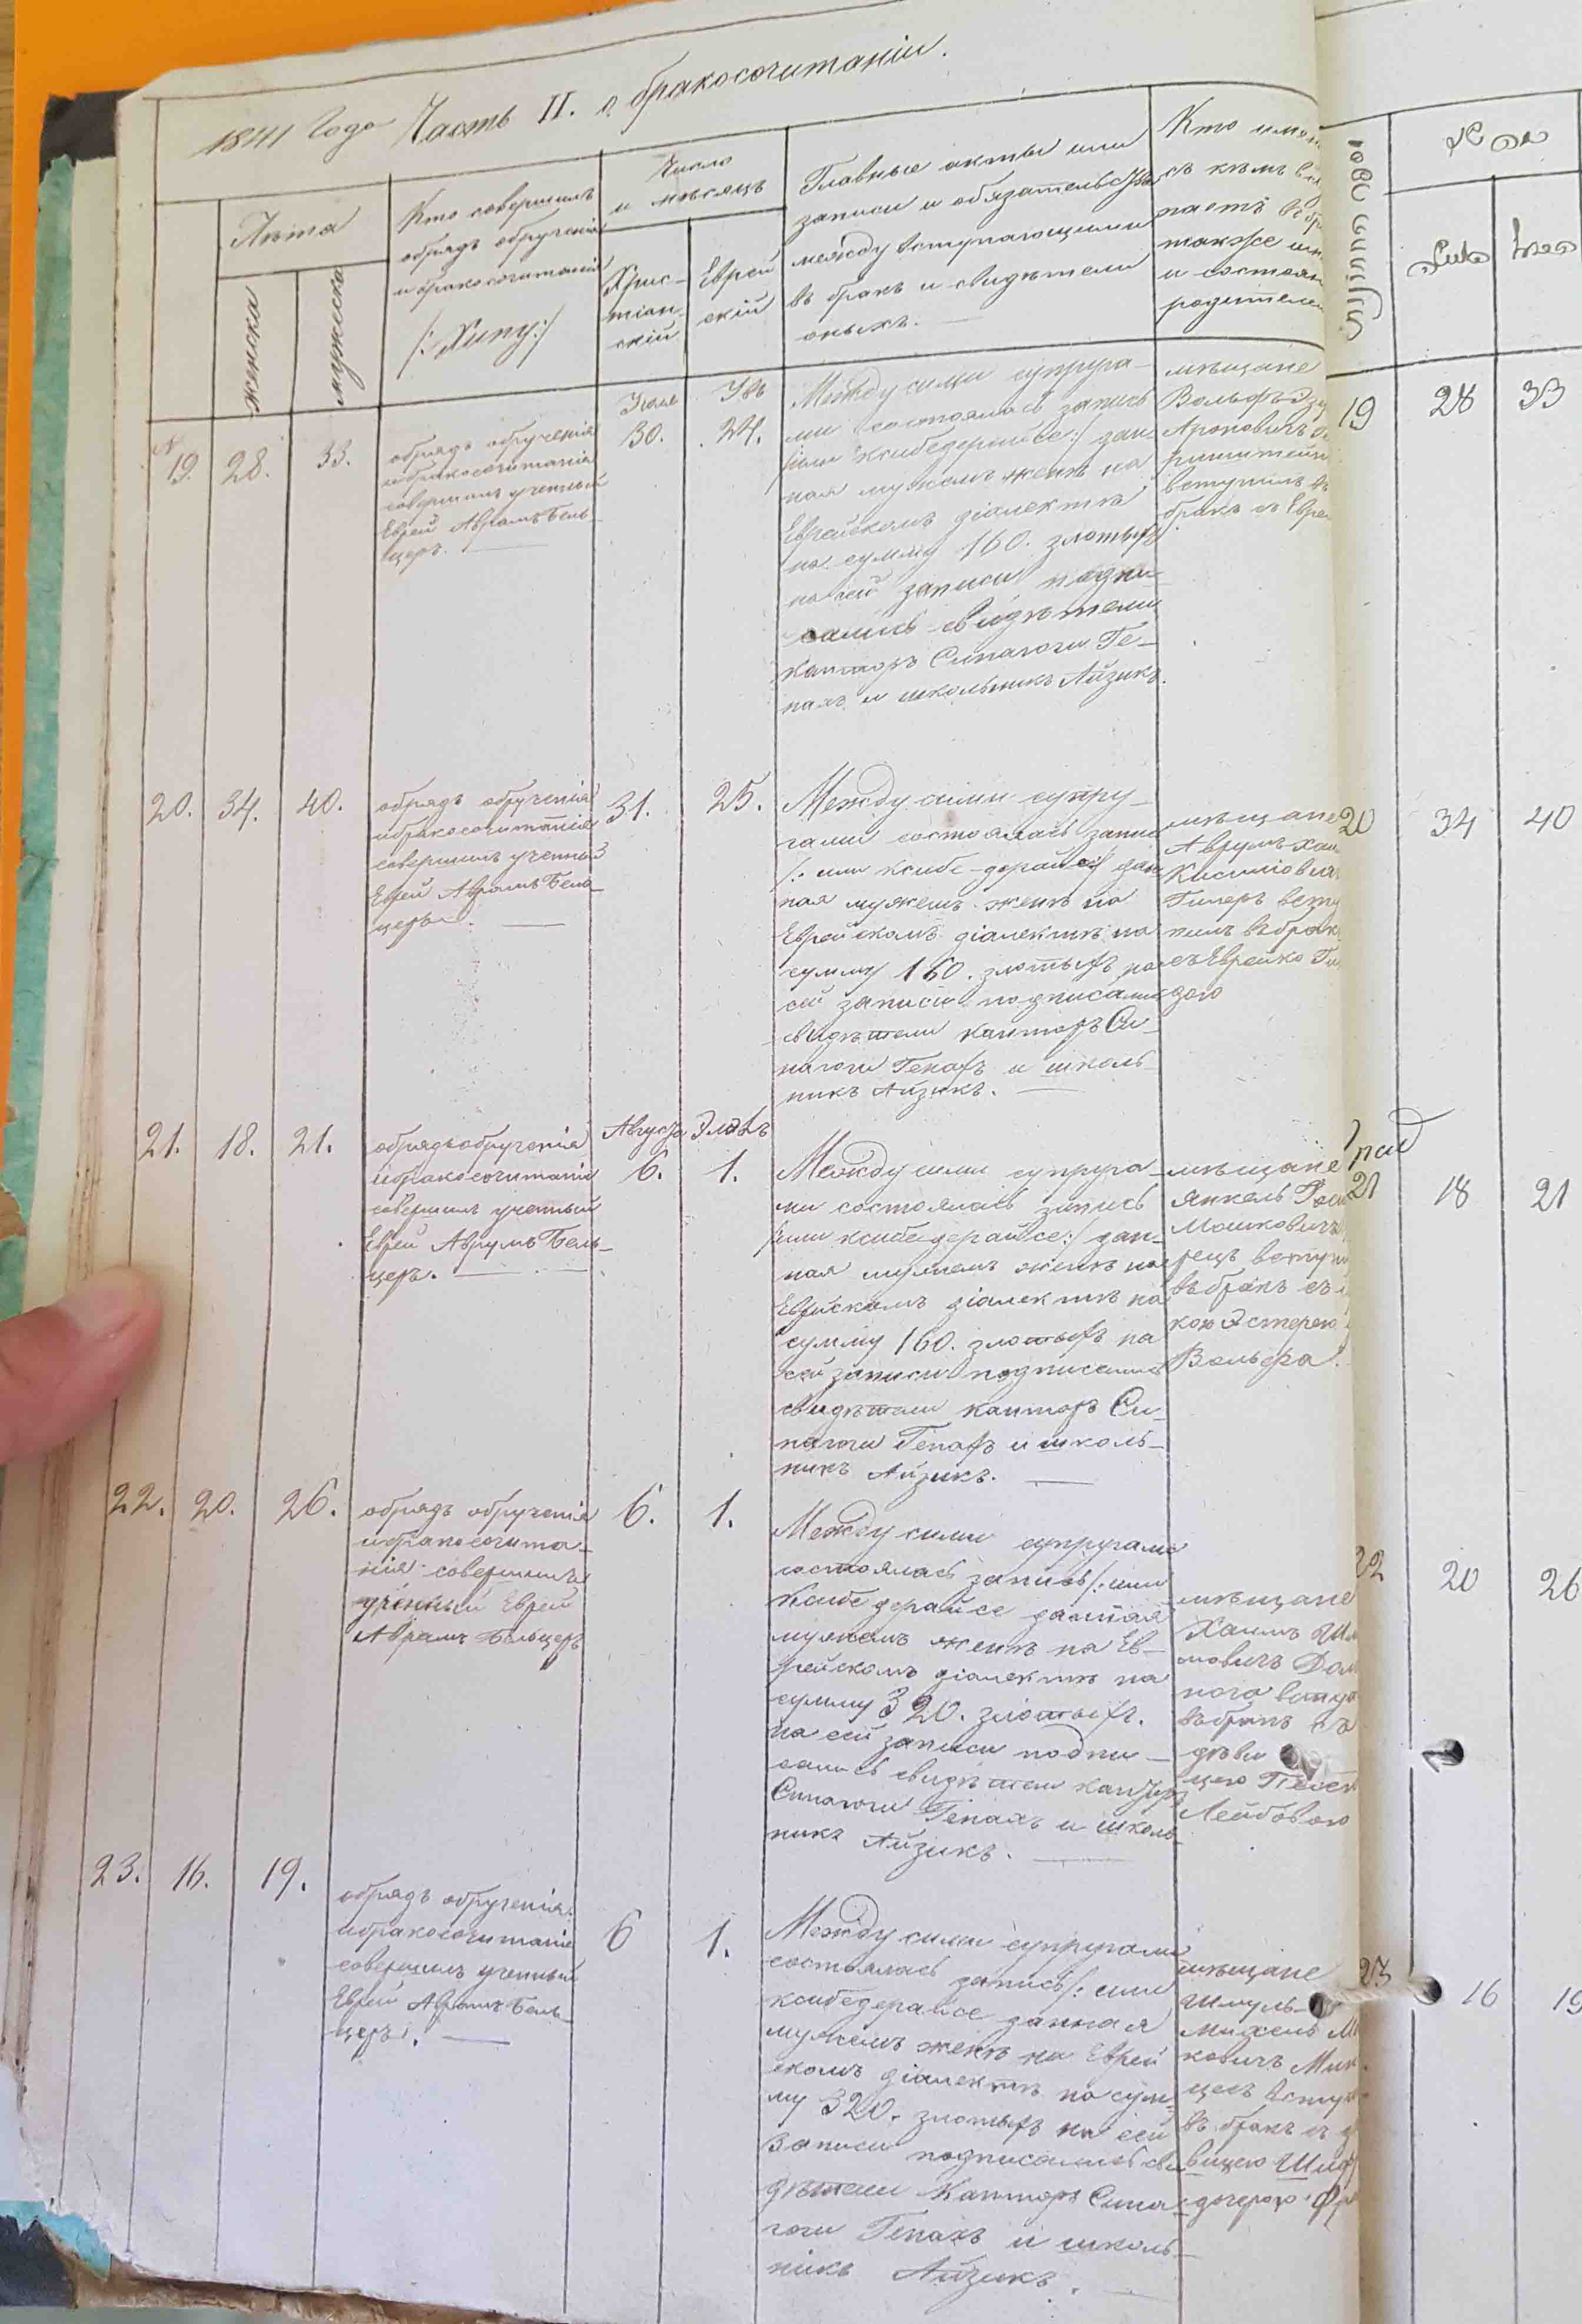 1841 Года Часть II. о бракосочитаніи.
Лѣта
женска
мужеска
Кто совершилъ
обрядъ обрученія
и бракосочитанія
/:Хипу:/
Число
и мѣсяцъ
Хрис-
тіан-
скій
Еврей
скій
Главные акты или
записи и обязательства
между вступающими
въ бракъ и свидѣтели
оныхъ.
Кто имен
съ кѣмъ в
паетъ въ бр
также им
и состоян
родителе
№
19. 28. 33.
обрядъ обрученія
и бракосочитанія
совершилъ ученный
Еврей Аврамъ Бель-
церъ.
Іюля
30.
Увъ
24.
Между сими супруга-
ми состоялась запись
/:или ксибедерайсе:/ дан-
ная мужемъ женѣ на
Еврейскомъ діалектѣ
на сумму 160. злотыхъ
на сей записи подпи-
сались свидѣтели
Канторъ Синагоги Ге-
нахъ и школьникъ Айзикъ.
мѣщане
Вольфъ
Ароновичъ
вступилъ въ
бракъ съ Евре
19 28 33
20. 34. 40.
обрядъ обрученія
и бракосочитанія
совершилъ ученный
Еврей Аврамъ Бель-
церъ.
31. 25.
Между сими супру-
гами состоялась запись
/:или ксибе-дерайсе:/ дан-
ная мужемъ женѣ на
Еврейскомъ діалектѣ на
сумму 160. злотыхъ на
сей записи подписались
свидѣтели канторъ Си-
нагоги Генахъ и школь-
никъ Айзикъ.
мѣщане
Аврумъ-Хаи
Гилеръ всту
пилъ въ брак
съ Еврейко
20 34 40
21. 18. 21.
обрядъ обрученія
и бракосочитанія
совершилъ ученный
Еврей Аврумъ Бель-
церъ.
Августа
6.
Элюлъ
1.
Между сими супруга-
ми состоялась запись
/:или ксибедерайсе:/ дан-
ная мужемъ женѣ на
Еврейскомъ діалектѣ на
сумму 160. злотыхъ на
сей записи подписались
свидѣтели канторъ Си-
нагоги Генахъ и школь-
никъ Айзикъ.
мѣщане
Янкель
Мошковичъ
рецъ вступи
въ бракъ съ
кою Эстерею
Вольфа.
21 18 21
22. 20. 26.
обрядъ обрученія
и бракосочита-
нія совершилъ
ученный Еврей
Аврамъ Бельцеръ
6. 1.
Между сими супругами
состоялась запись /:или
ксибе дерайсе данная
мужемъ женѣ на Ев-
рейскомъ діалектѣ на
сумму 320. злотыхъ.
на сей записи подпи-
сались свидѣтели канторъ
Синагоги Генахъ и школь-
никъ Айзикъ.
мѣщане
Хаимъ
мовичъ
ного вступ
въ бракъ съ
дѣви
цею
Лейбовою
22 20 26
23. 16. 19.
обрядъ обрученія
и бракосочитанія
совершилъ ученный
Еврей Аврамъ Бель-
церъ.
6 1.
Между сими супругами
состоялась запись /:или
ксибедерайсе данная
мужемъ женѣ на Еврей
скомъ діалектѣ на сум-
му 320. злотыхъ на сей
записи подписались сви
дѣтели Канторъ Сина-
гоги Генахъ и школь-
никъ Айзикъ.
мѣщане
Шмуль-
Михель М
ковичъ Мин
цесъ вступ
въ бракъ съ д
вицею Шиф
дочерою Фр
23 16 19